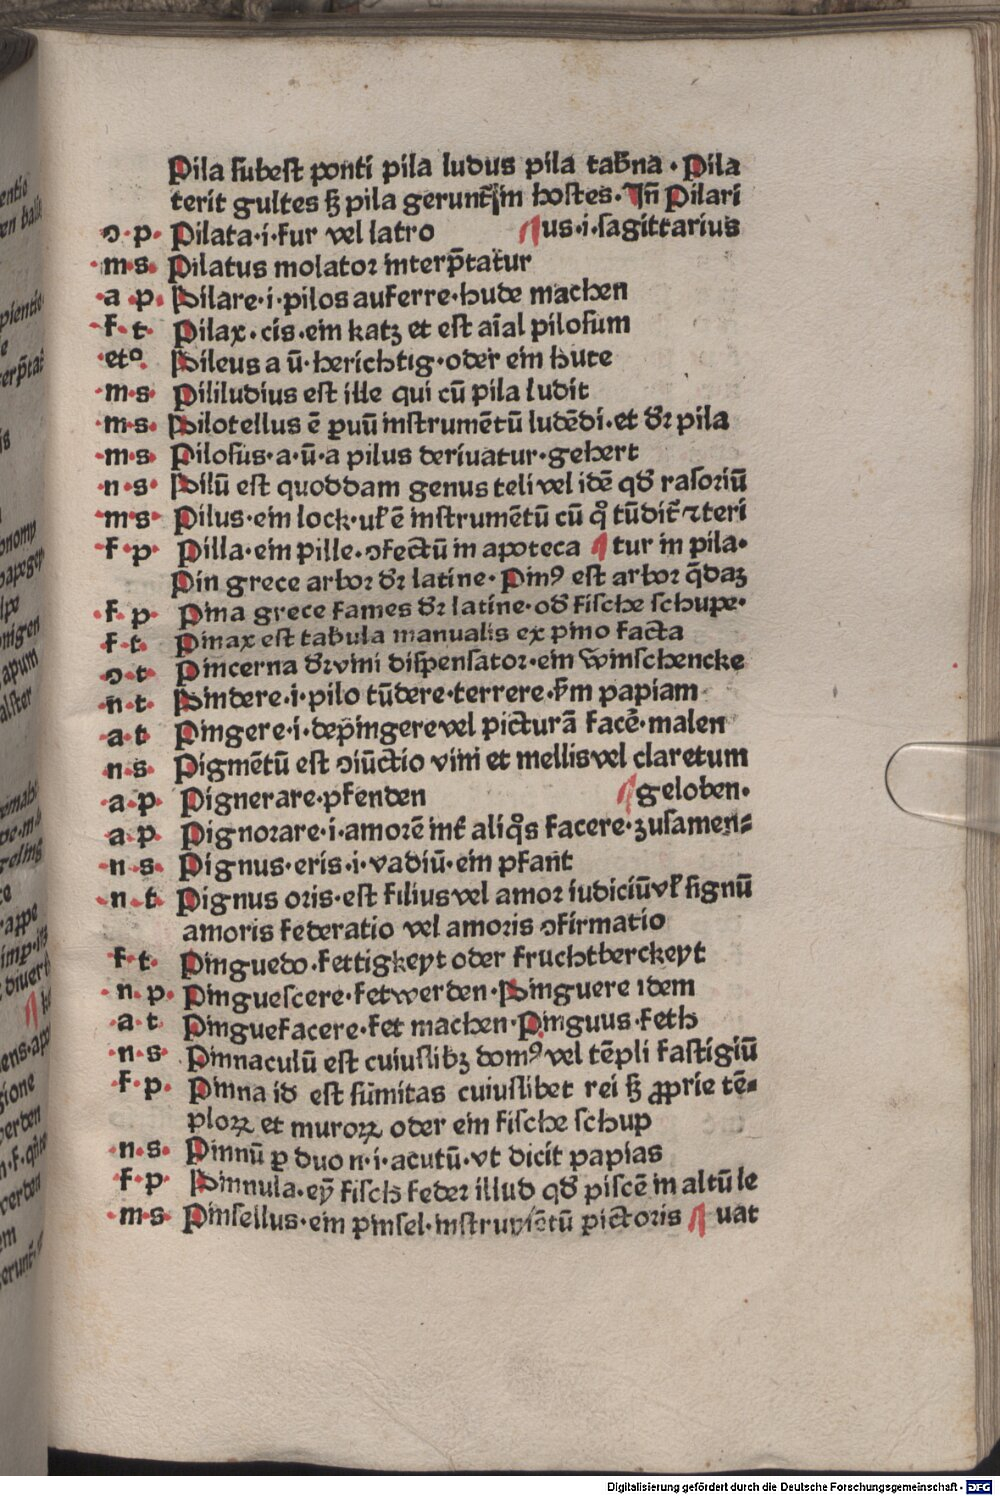 Pila subest ponti pila ludus pila tab̄na · Pila
terit gultes ꝫ pila gerunt in hostes · Jn̄ Pilari
ɔ · p · Pilata · i · fur vel latro ¶ us · i · sagittarius
· m · s · Pilatus molator interp̄tatur
· a · p · Pilare · i · pilos auferre · hude machen
· f · t · Pilax · cis · ein katz et est aīal pilosum
· etº · Pileus a ū · herichtig · oder ein hute
· m · s · Pililudius est ille qui cū pila ludit
· m · s · Pilotellus ē ꝑuū instrumētū ludēdi · et dr̄ pila
· m · s · Pilosus · a · ū · a pilus deriuatur · gehert
· n · s · Pilū est quoddam genus teli vel idē qd̄ rasoriū
· m · s · Pilus · ein lock · ul̕ ē instrumētū cū qº tūdit̄ ⁊ teri
· f · p · Pilla · ein pille · ɔfectū in apoteca ¶ tur in pila ·
Pin grece arbor dr̄ latine · Pinꝰ est arbor q̄daꝫ
· f · p · Pina grece fames dr̄ latine · od̄ fische schupe ·
f · t · Pinax est tabula manualis ex pino facta
· ɔ · t · Pincerna dr̄ vini dispensator · ein winschencke
· n · t · Pindere · i · pilo tūdere · terrere · s̄m papiam
· a · t Pingere · i · depīngere vel picturā facē · malen
· n · s · Pigmētū est ɔiūctio vini et mellis vel claretum
· a · p · Pignerare · pfenden ¶ geloben ·
· a · p · Pignorare · i · amorē int̄ aliqºs facere · zusamen⸗
· n · s · Pignus · eris · i · vadiū · ein pfant
· n · t · Pignus oris · est filius vel amor iudiciū vl̕ signū
amoris federatio vel amoris ɔfirmatio
· f · t · Pinguedo · fettigkeyt oder fruchtberckeyt
· n · p · Pinguescere · fet werden · Pinguere idem
· a · t Pinguefacere · fet machen · Pinguus · feth
· n · s · Pinnaculū est cuiuslibꝫ domꝰ vel tēpli fastigiū
· f · p · Pinna id est sūmitas cuiuslibet rei ꝫ ꝓprie tē⸗
ploꝝ et muroꝝ oder ein fische schup
· n · s · Pinnū ꝑ duo n · i · acutū · vt dicit papias
· f · p · Pinnula · eȳ fisch feder illud qd̄ piscē in altū le
· m · s Pinsellus · ein pinsel · instrumētū pictoris ¶ uat
Digitalisierung gefördert durch die Deutsche Forschungsgemeinschaft - DFG